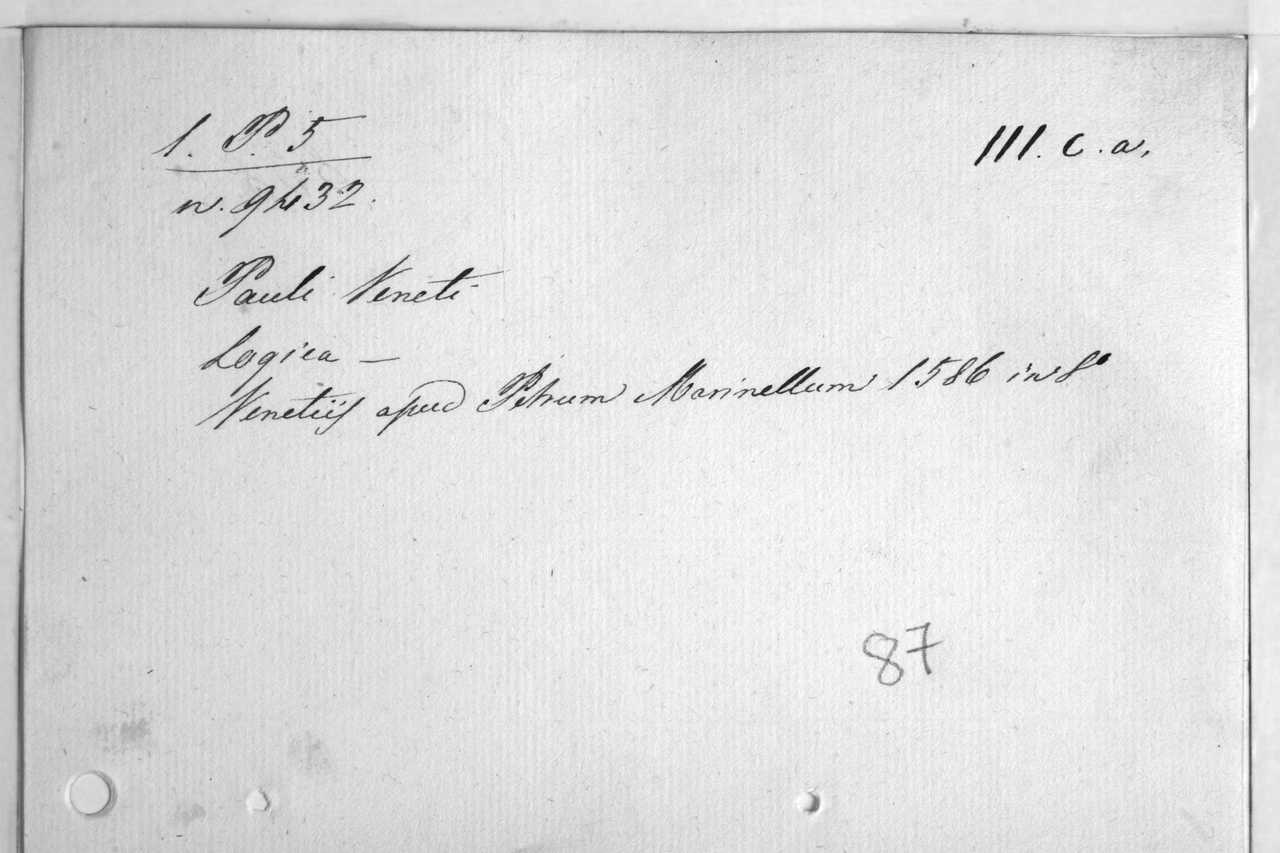 1. P. 5
III. c. a.
n. 9432.
Pauli Veneti
Logica —
Venetiis apud Petrum Marinellum 1586 in 8°
87